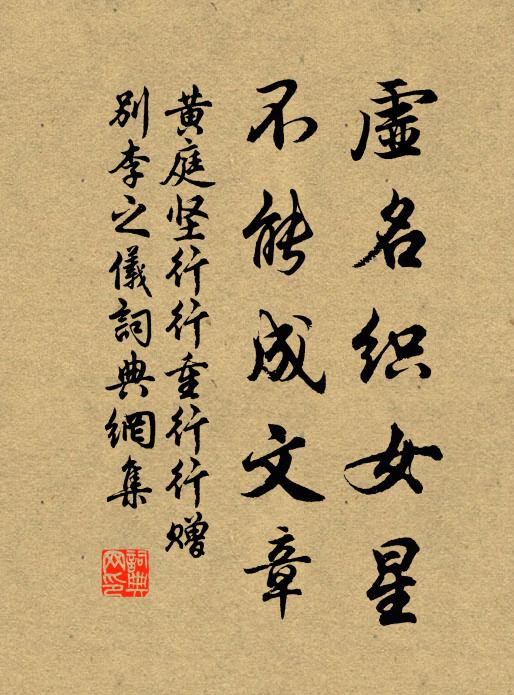 虚名织女星
不能成文章
黄庭坚行行重行行赠
别李之儀詞典網集
詞典
网印